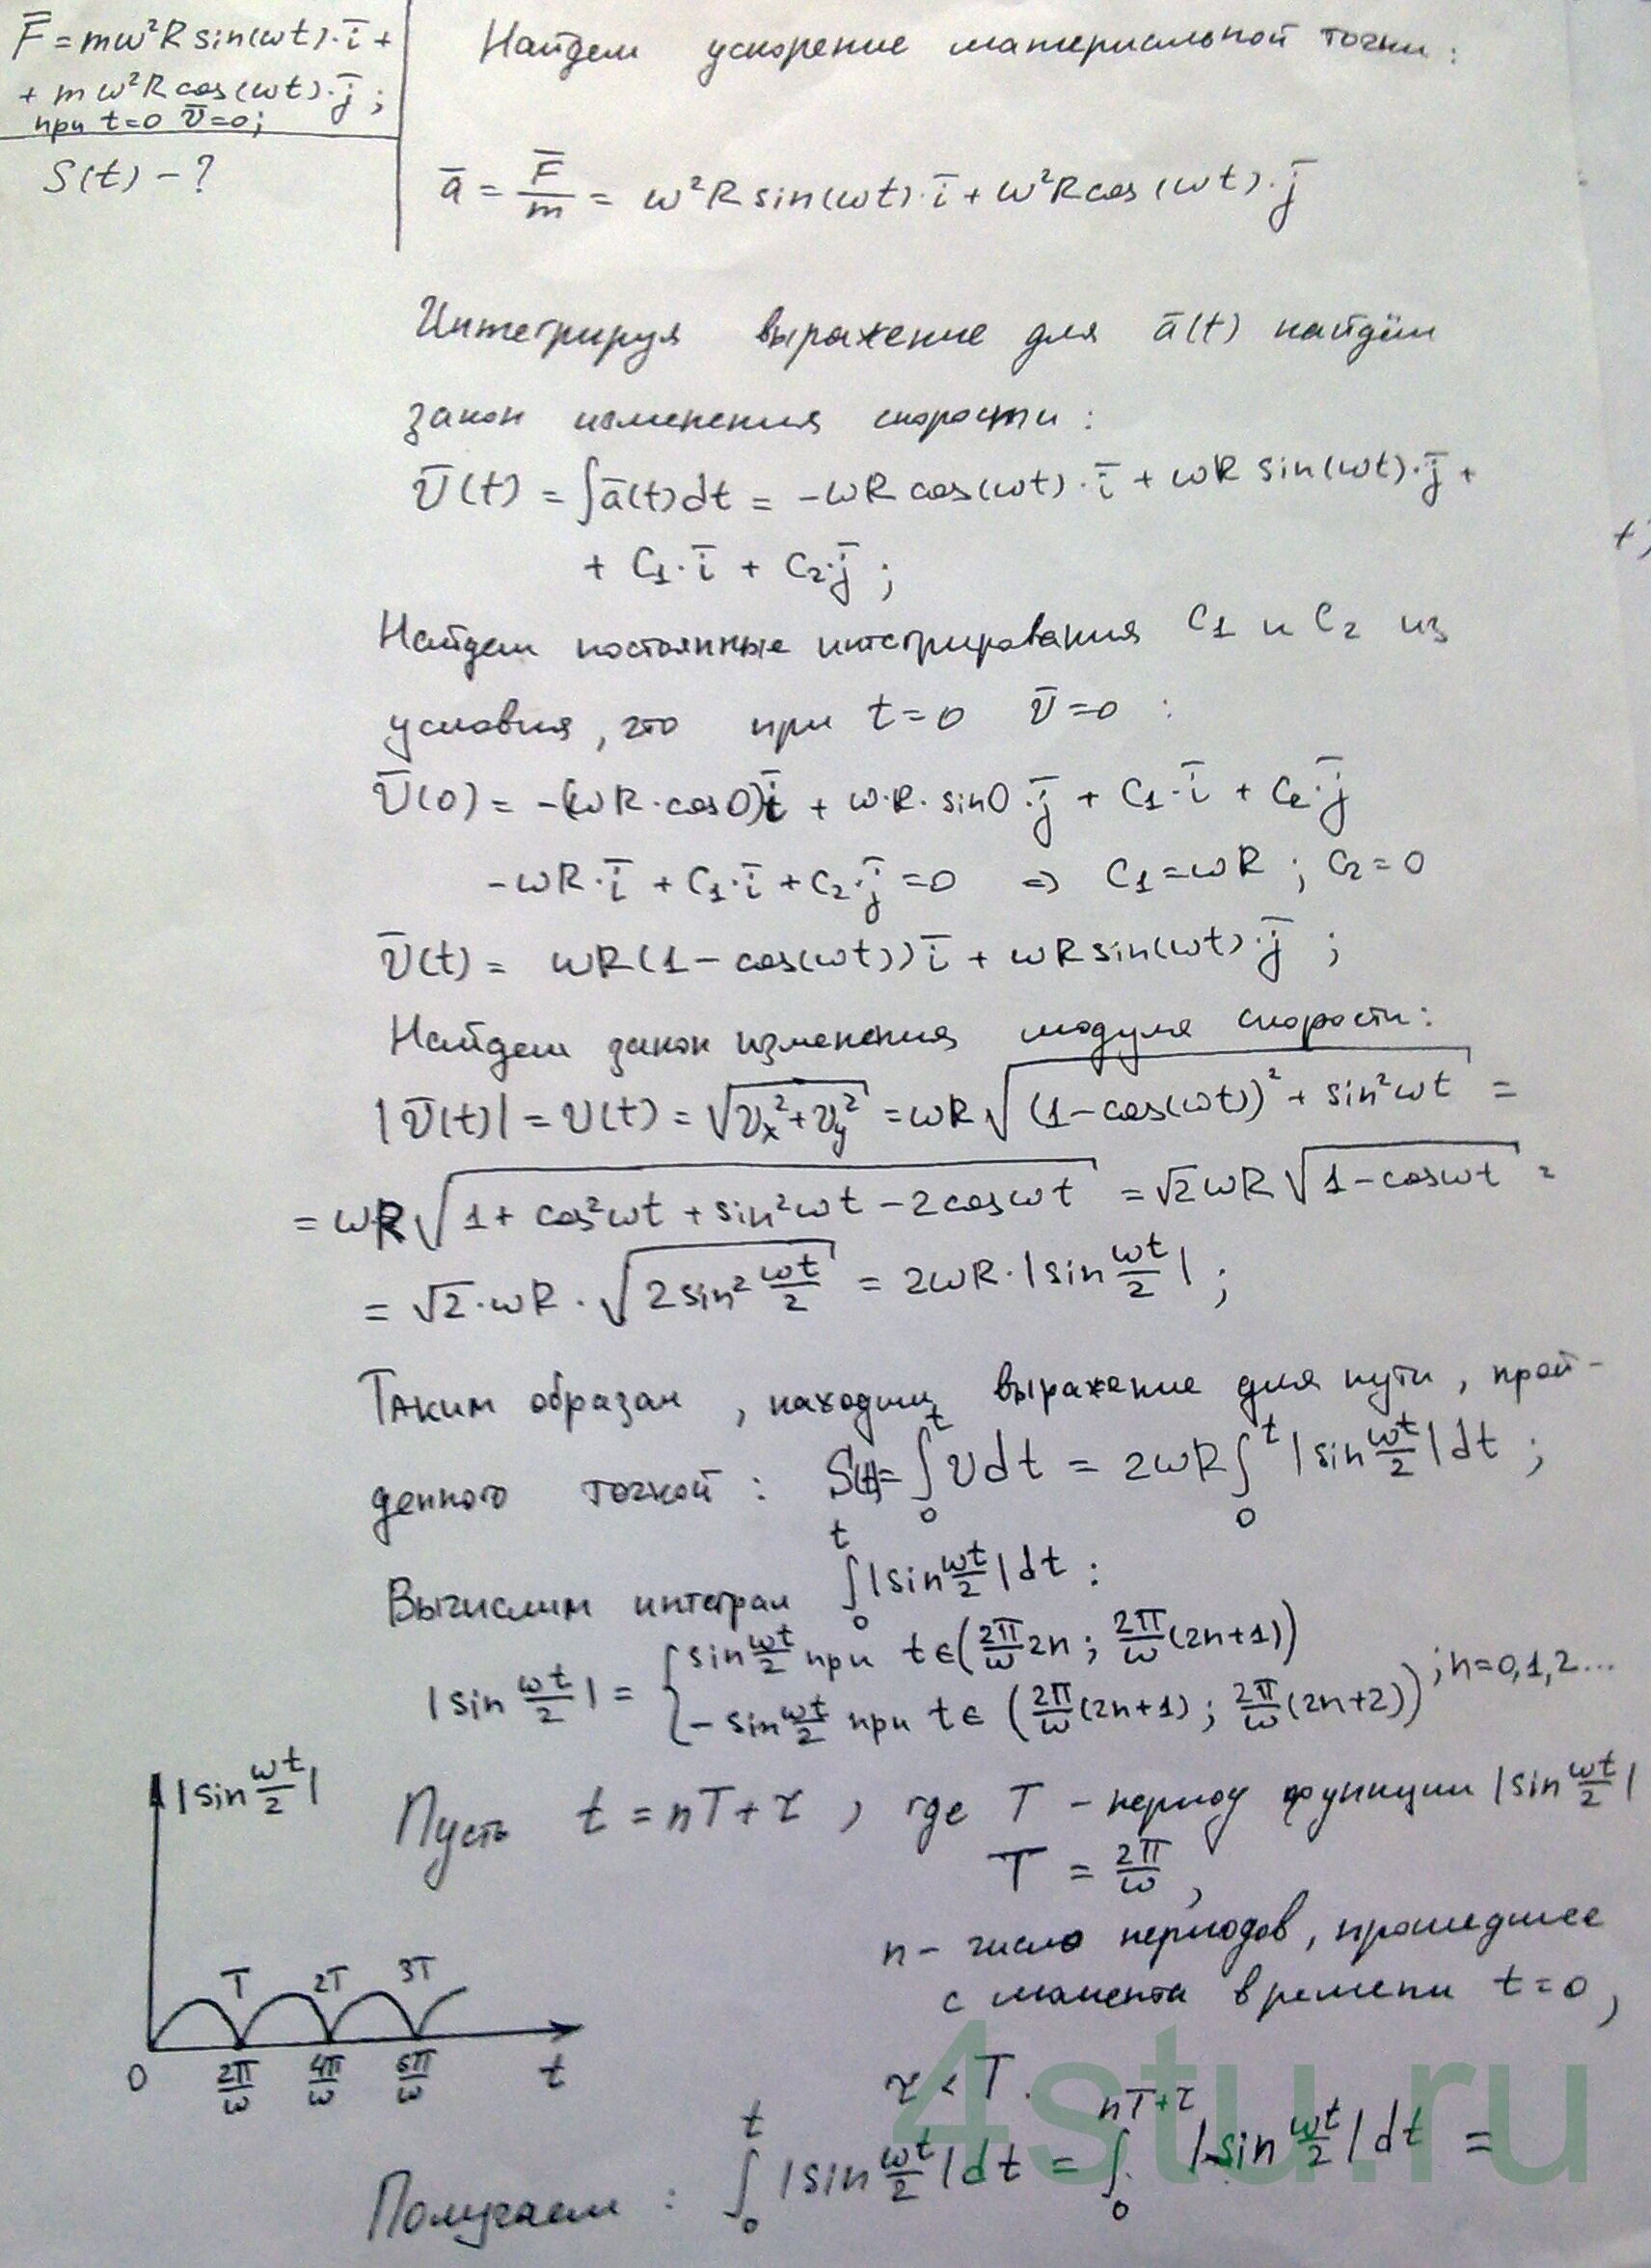 F̅ = mω²R sin(ωt)·i̅ +
+ mω²R cos(ωt)·j̅ ;
при t=0 v̅=0;
S(t) - ?
Найдем ускорение материальной точки :
a̅ = F̅/m = ω²R sin(ωt)·i̅ + ω²R cos(ωt)·j̅
Интегрируя выражение для a̅(t) найдём
закон изменения скорости :
v̅(t) = ∫a̅(t)dt = -ωR cos(ωt)·i̅ + ωR sin(ωt)·j̅ +
+ C₁·i̅ + C₂·j̅ ;
Найдем постоянные интегрирования C₁ и C₂ из
условия, что при t=0 v̅=0 :
v̅(0) = -(ωR·cos0)i̅ + ω·R·sin0·j̅ + C₁·i̅ + C₂·j̅
-ωR·i̅ + C₁·i̅ + C₂·j̅ = 0 ⇒ C₁=ωR ; C₂=0
v̅(t) = ωR(1-cos(ωt))i̅ + ωR sin(ωt)·j̅ ;
Найдем закон изменения модуля скорости:
|v̅(t)| = v(t) = √(vₓ²+v_y²) = ωR√((1-cos(ωt))² + sin²ωt) =
= ωR√(1 + cos²ωt + sin²ωt - 2cosωt) = √2 ωR√(1-cosωt) =
= √2·ωR·√(2sin² ωt/2) = 2ωR·|sin ωt/2| ;
Таким образом, находим выражение для пути, прой-
денного точкой : S(t) = ∫₀ᵗ vdt = 2ωR∫₀ᵗ |sin ωt/2|dt ;
Вычислим интеграл ∫₀ᵗ |sin ωt/2|dt :
|sin ωt/2| = { sin ωt/2 при t∈(2π/ω 2n ; 2π/ω (2n+1))
-sin ωt/2 при t∈(2π/ω (2n+1) ; 2π/ω (2n+2)) ; n=0,1,2...
|sin ωt/2|
T 2T 3T
0 2π/ω 4π/ω 6π/ω t
Пусть t = nT+τ , где T - период функции |sin ωt/2|
T = 2π/ω ,
n - число периодов, прошедшее
с момента времени t=0 ,
τ < T.
Получаем : ∫₀ᵗ |sin ωt/2|dt = ∫₀ⁿᵀ⁺ᵗ |sin ωt/2|dt =
4stu.ru